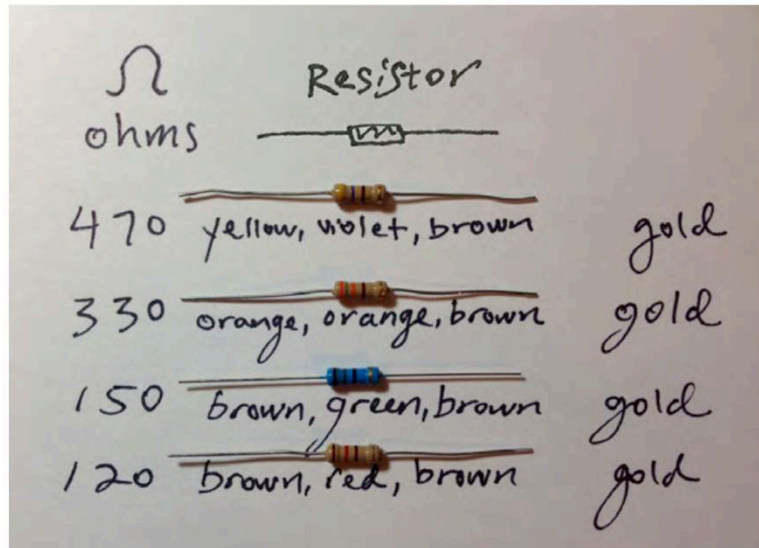 Ω Resistor
ohms
470 yellow, violet, brown gold
330 orange, orange, brown gold
150 brown, green, brown gold
120 brown, red, brown gold